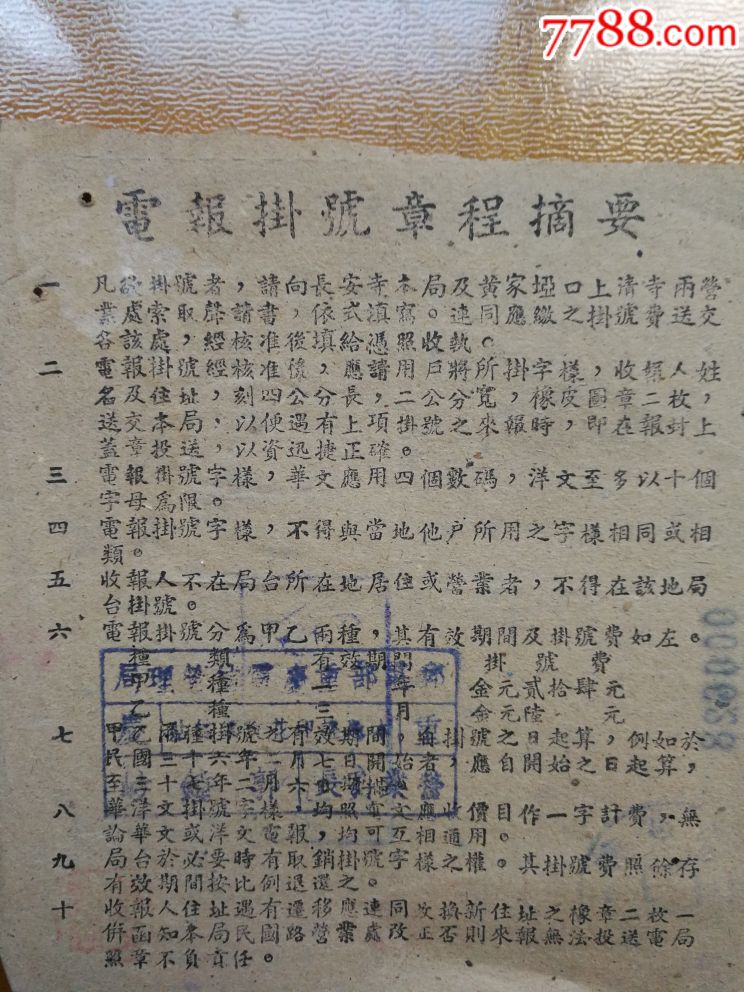 7788.com
電報掛號章程摘要
一 凡欲掛號者，請向長安寺本局及黃家埡口上清寺兩營
業處索取聲請書，依式填寫。連同應繳之掛號費送交
各該處，經核准後填給憑照收執。
二 電報掛號經核准後，應請用戶將所掛字樣，收報人姓
名及住址，刻四公分長，二公分寬，橡皮圖章二枚，
送交本局，以便遇有上項掛號之來報時，即在報封上
蓋章投送，以資迅捷正確。
三 電報掛號字樣，華文應用四個數碼，洋文至多以十個
字母為限。
四 電報掛號字樣，不得與當地他戶所用之字樣相同或相
類。
五 收報人不在局台所在地居住或營業者，不得在該地局
台掛號。
六 電報掛號分為甲乙兩種，其有效期間及掛號費如左。
種類 有效期間 掛號費
甲種 一年 金元貳拾肆元
乙種 三月 金元陸元
七 甲乙兩種掛號有效期間，自掛號之日起算，例如於
民國三十七年 應自開始之日起算，
至
八 華洋文掛號字樣 均照 文應收價目作一字計費，無
論華文或洋文電報均可互相通用。
九 局台於必要時有取銷掛號字樣之權。其掛號費照餘存
有效期間按比例退還之。
十 收報人住址遇有遷移應連同改換新住址之橡章二枚一
併函知本局民國路營業處改正否則來報無法投送電局
照章不負責任。
000638